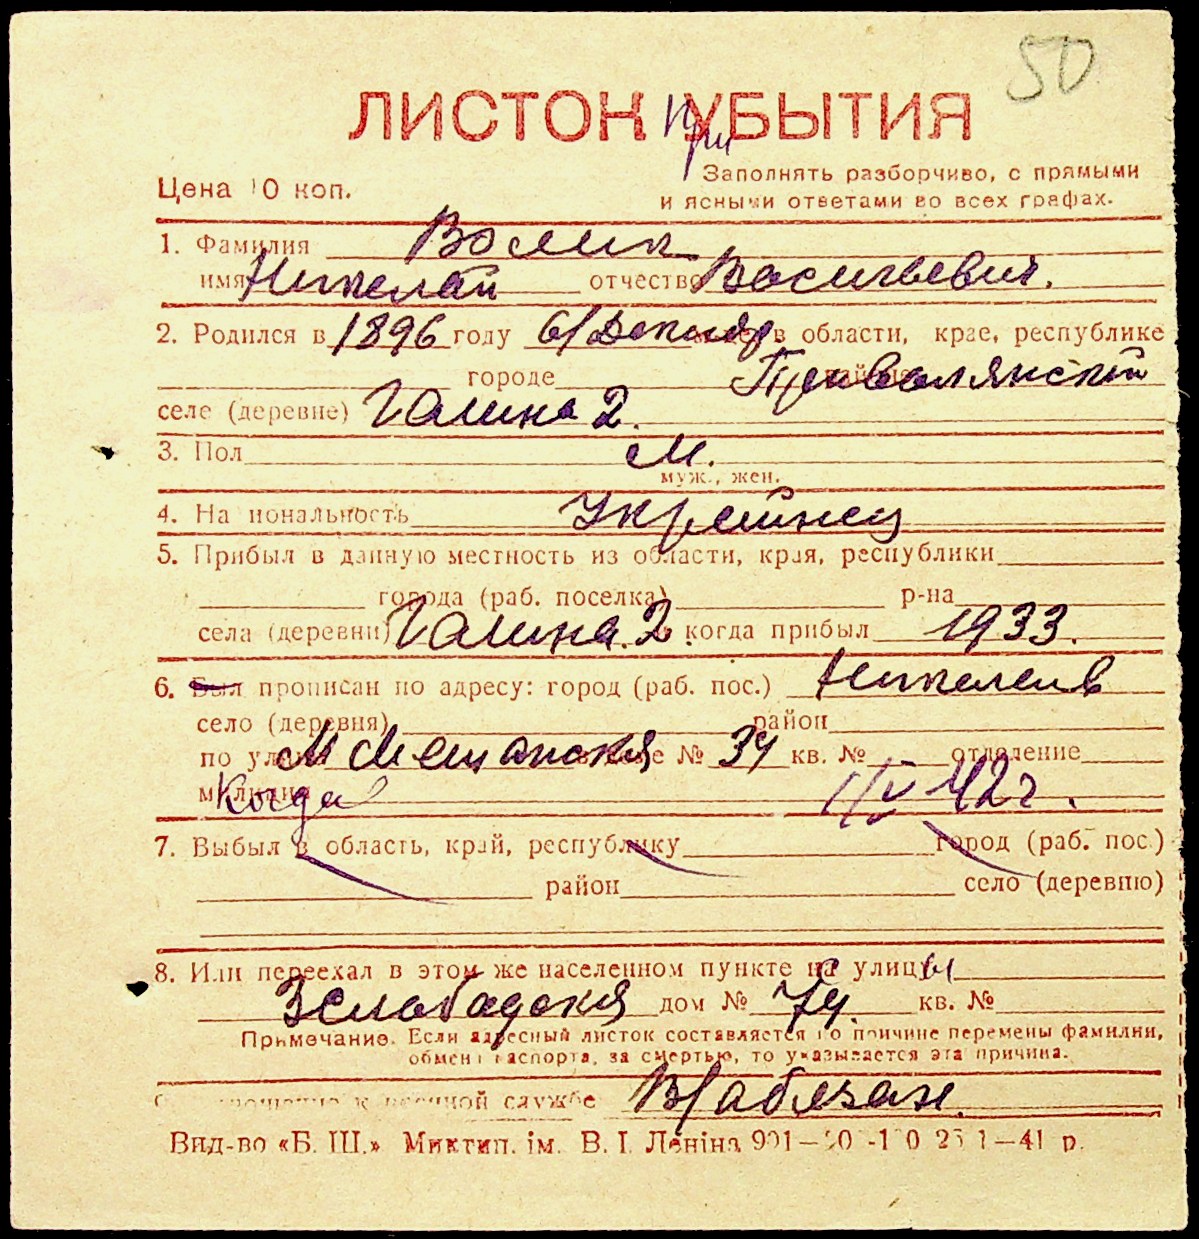 50
ЛИСТОК При УБЫТИЯ
Цена 10 коп.
Заполнять разборчиво, с прямыми
и ясными ответами во всех графах.
1. Фамилия Волик
имя Николай отчество Васильевич.
2. Родился в 1896 году 6/Декабр в области, крае, республике
городе Привалянский
селе (деревне) Галина 2.
3. Пол М.
муж., жен.
4. Национальность Украинец
5. Прибыл в данную местность из области, края, республики
города (раб. поселка) р-на
села (деревни) Галина 2. когда прибыл 1933.
6. Был прописан по адресу: город (раб. пос.) Николаев
село (деревня) район
по улице М Мещанская доме № 34 кв. № отделение
милиции Когда 1/IV 42 г.
7. Выбыл в область, край, республику город (раб. пос.)
район село (деревню)
8. Или переехал в этом же населенном пункте с улицы
3 Слободская дом № 74. кв. №
Примечание. Если адресный листок составляется по причине перемены фамилии,
обмена паспорта, за смертью, то указывается эта причина.
Отношение к военной службе В/обязан.
Вид-во «Б. Ш.» Миктип. ім. В. І. Леніна 1—41 р.